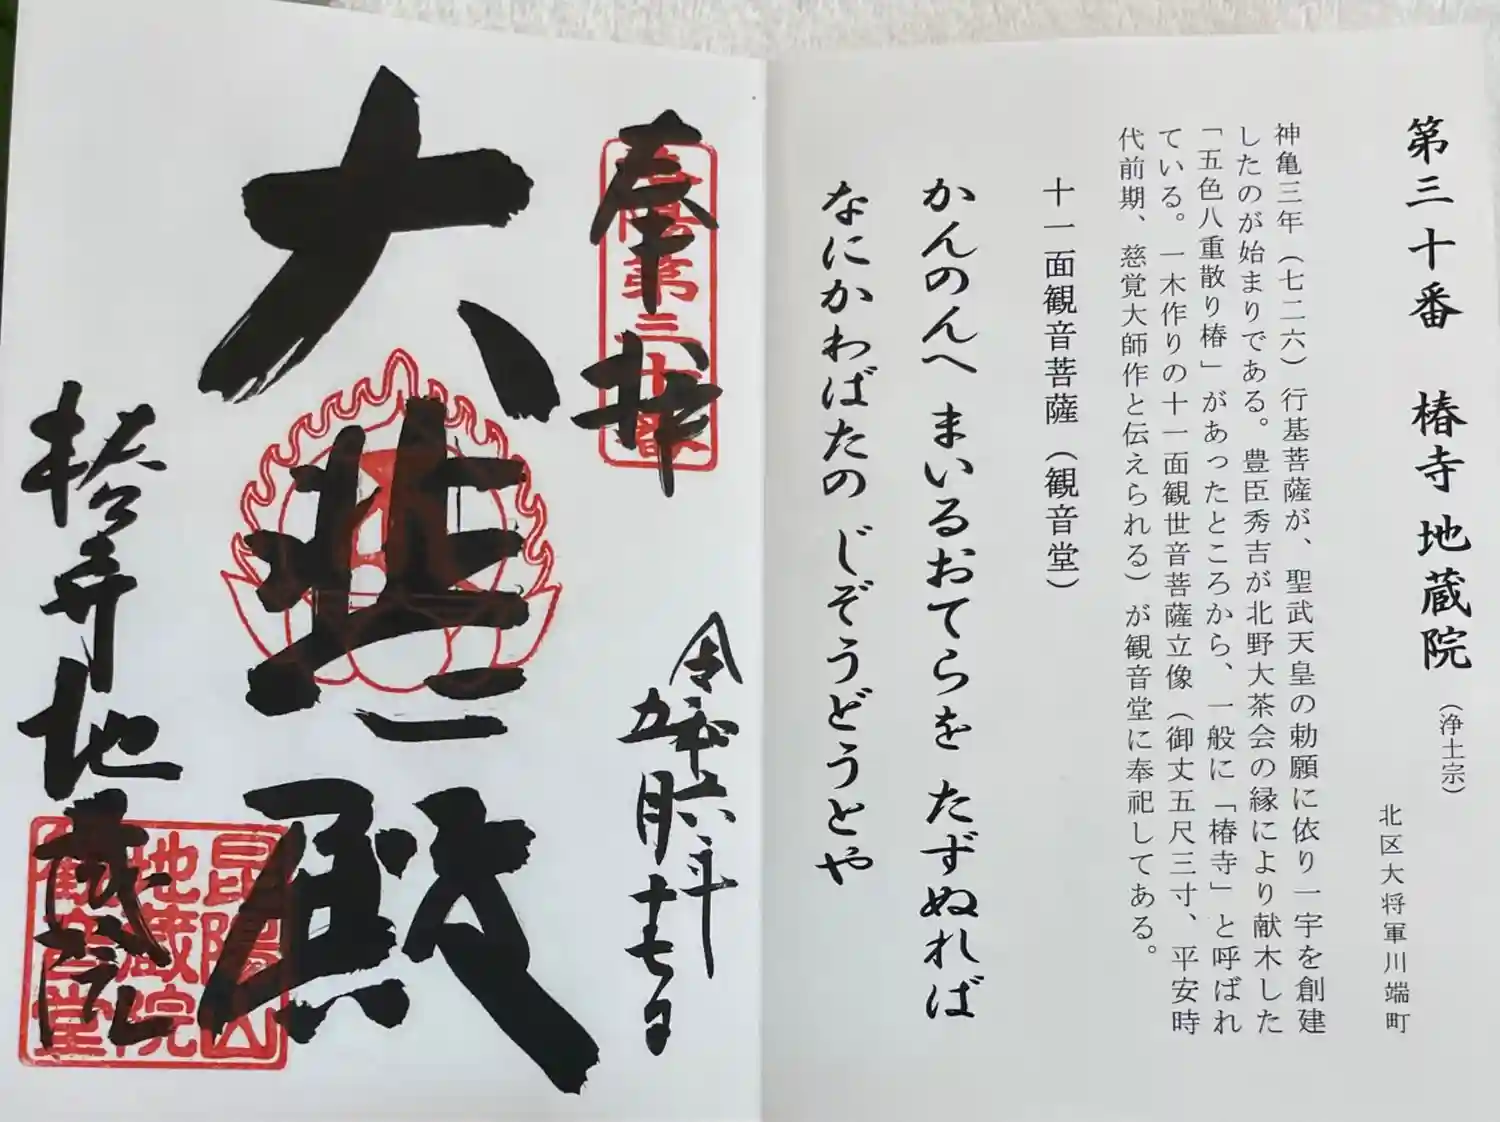 第三十番 椿寺 地蔵院 (浄土宗)
北区大将軍川端町
神亀三年(七二六)行基菩薩が、聖武天皇の勅願に依り一宇を創建
したのが始まりである。豊臣秀吉が北野大茶会の縁により献木した
「五色八重散り椿」があったところから、一般に「椿寺」と呼ばれ
ている。一木作りの十一面観世音菩薩立像(御丈五尺三寸、平安時
代前期、慈覚大師作と伝えられる)が観音堂に奉祀してある。
十一面観音菩薩(観音堂)
かんのんへ まいるおてらを たずぬれば
なにかわばたの じぞうどうとや
奉拝
洛陽第三十番
令和六年
五月十七日
大悲殿
椿寺地蔵院
昆陽山
地蔵院
観音堂